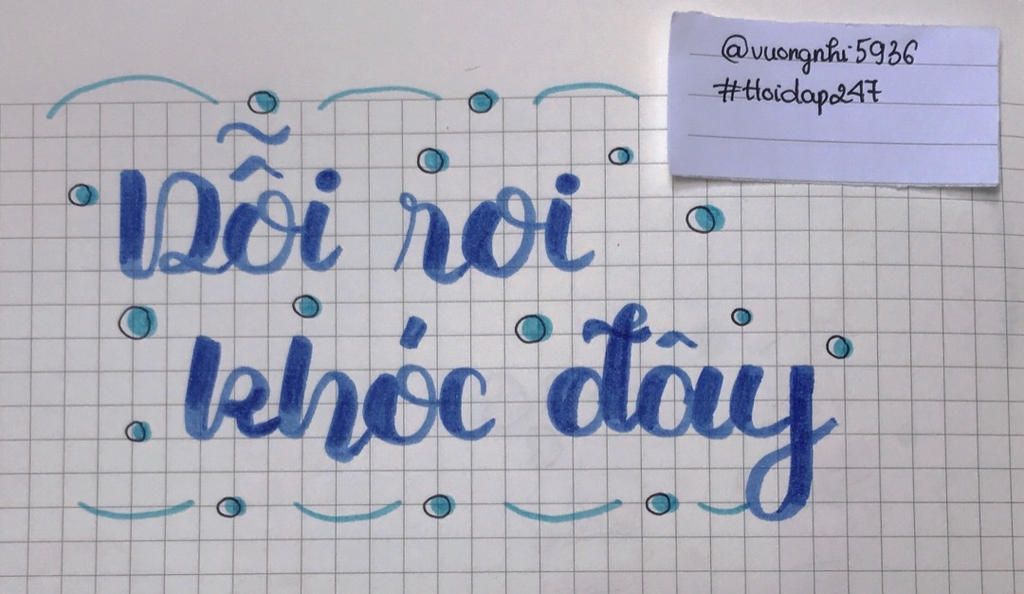 Dỗi roi
khóc đây
@vuongnhi5936
#Hoidap247